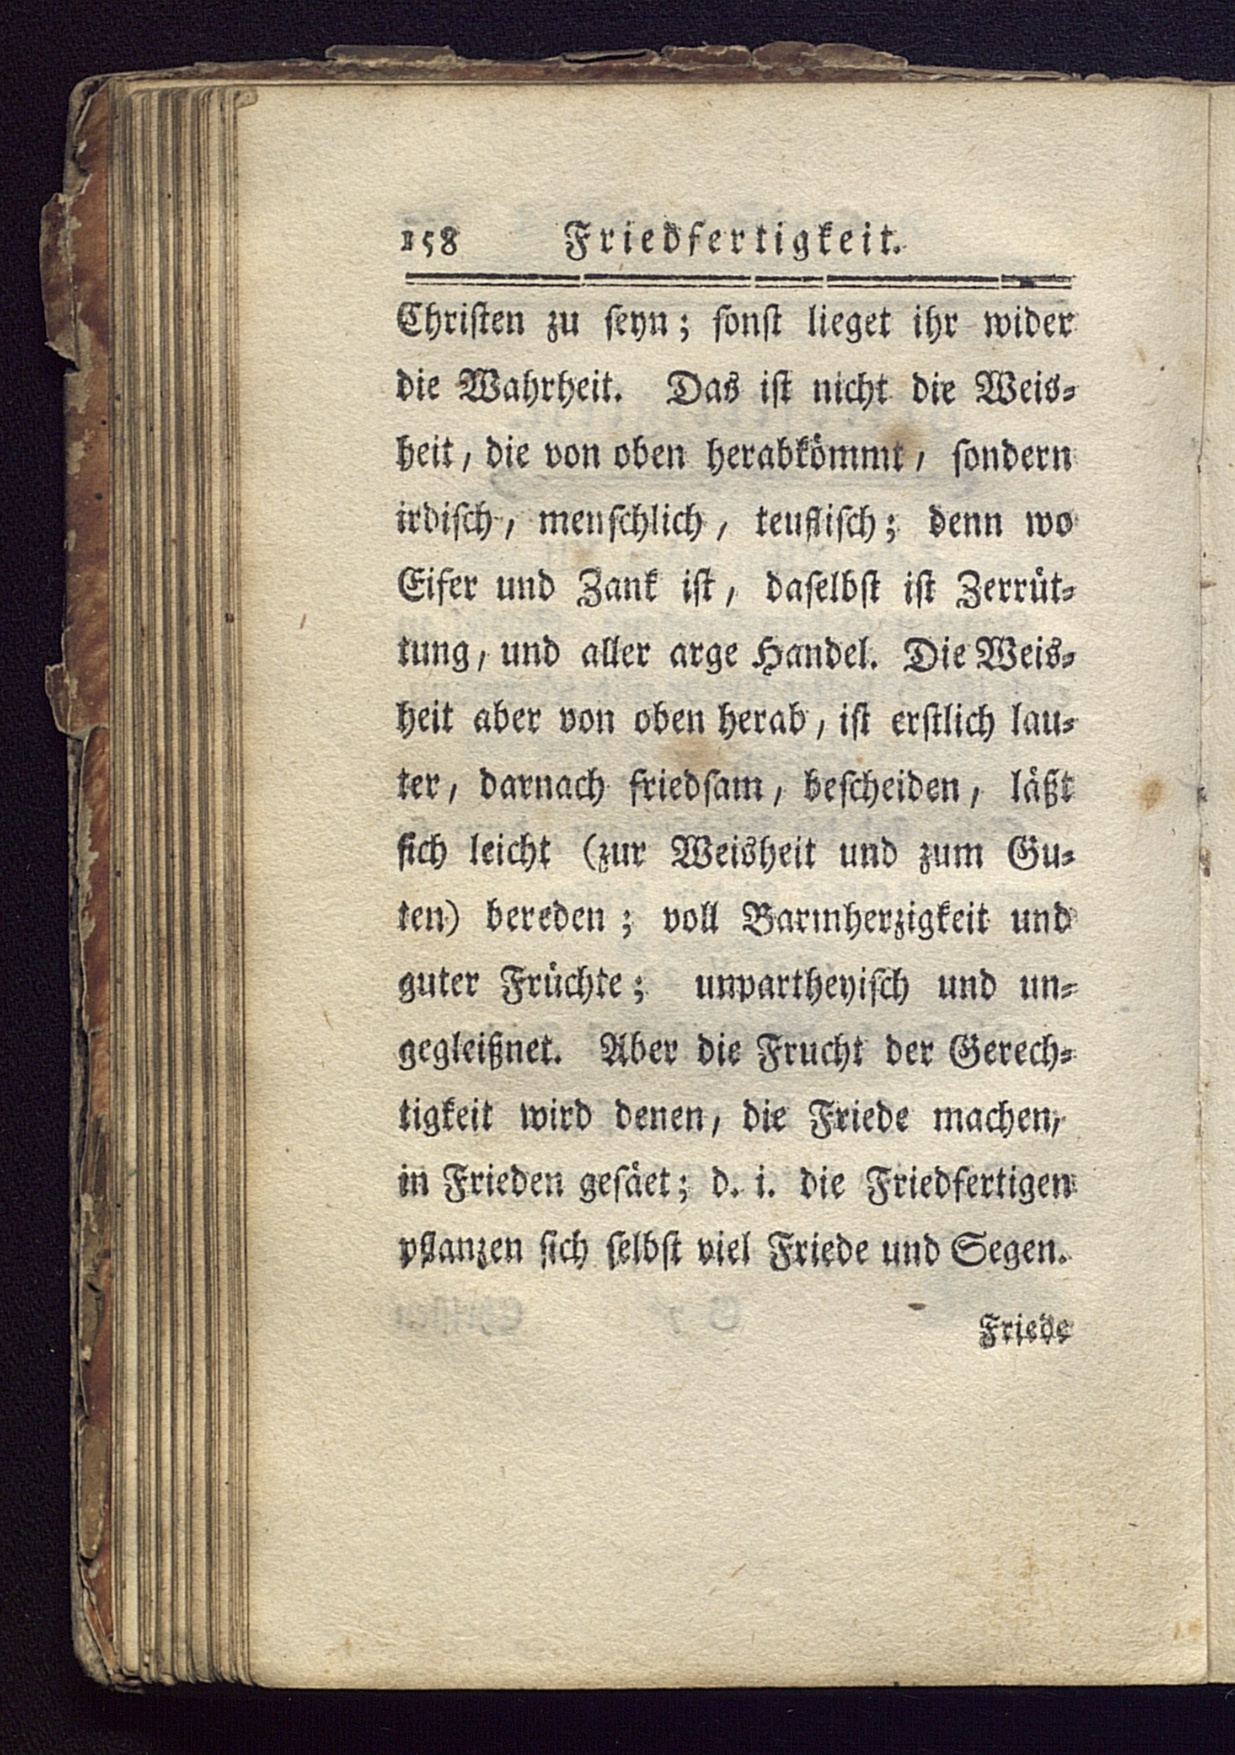 158 Friedfertigkeit.
Chriſten zu ſeyn; ſonſt lieget ihr wider
die Wahrheit. Das iſt nicht die Weis⸗
heit, die von oben herabkömmt, ſondern
irdiſch, menſchlich, teufliſch; denn wo
Eifer und Zank iſt, daſelbſt iſt Zerrüt⸗
tung, und aller arge Handel. Die Weis⸗
heit aber von oben herab, iſt erſtlich lau⸗
ter, darnach friedſam, beſcheiden, läßt
ſich leicht (zur Weisheit und zum Gu⸗
ten) bereden; voll Barmherzigkeit und
guter Früchte; unpartheyiſch und un⸗
gegleißnet. Aber die Frucht der Gerech⸗
tigkeit wird denen, die Friede machen,
in Frieden geſäet; d. i. die Friedfertigen
pflanzen ſich ſelbſt viel Friede und Segen.
Friede